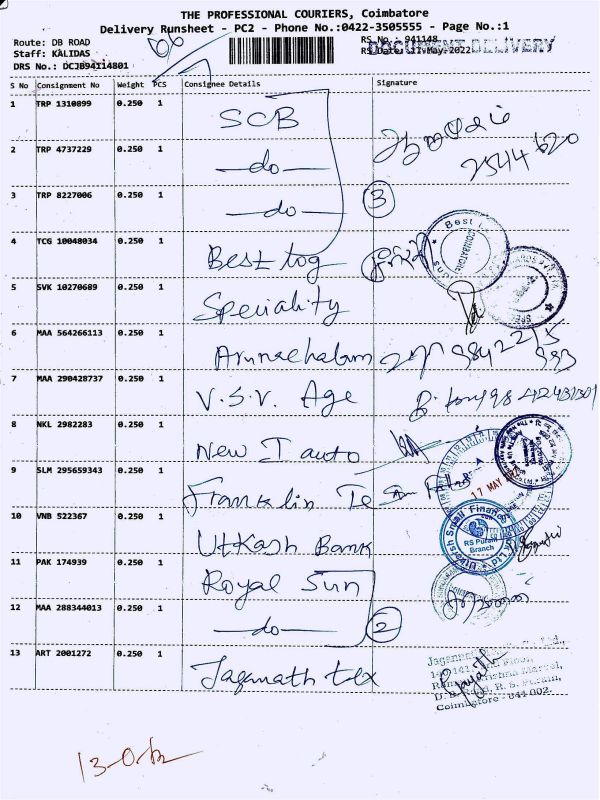 THE PROFESSIONAL COURIERS, Coimbatore
Delivery Runsheet - PC2 - Phone No.:0422-3505555 - Page No.:1
Route: DB ROAD RS No.: 941148
Staff: KALIDAS RS Date: 17-May-2022
DRS No.: DCJB94114801 DOCUMENT DELIVERY
S No Consignment No Weight PCS Consignee Details Signature
1 TRP 1310899 0.250 1 SCB
2 TRP 4737229 0.250 1 —do— 2544620
3 TRP 8227006 0.250 1 —do— 3
4 TCG 10048034 0.250 1 Best log
5 SVK 10270689 0.250 1 Speciality
6 MAA 564266113 0.250 1 Arunachalam
7 MAA 290428737 0.250 1 V.S.V. Age
8 NKL 2982283 0.250 1 New I auto
9 SLM 295659343 0.250 1 Franklin Te 17 MAY
10 VNB 522367 0.250 1 Utkash Bank RS Puram Branch
11 PAK 174939 0.250 1 Royal Sun
12 MAA 288344013 0.250 1 —do— 2
13 ART 2001272 0.250 1 Jaganath tex
D. B. R. S. Puram,
Coimbatore - 641 002.